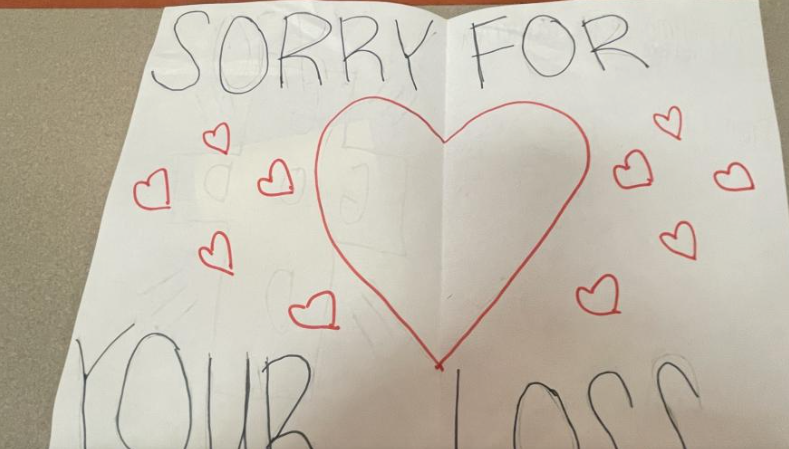 SORRY FOR
YOUR LOSS